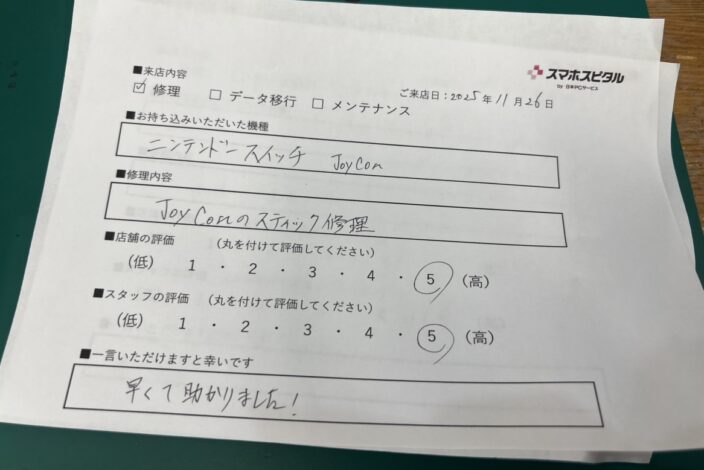 スマホスピタル
by 日本PCサービス
■来店内容
ご来店日：2025年11月26日
☑ 修理 □ データ移行 □ メンテナンス
■お持ち込みいただいた機種
ニンテンドースイッチ JoyCon
■修理内容
JoyConのスティック修理
■店舗の評価 （丸を付けて評価してください）
（低） 1 ・ 2 ・ 3 ・ 4 ・ 5 （高）
■スタッフの評価 （丸を付けて評価してください）
（低） 1 ・ 2 ・ 3 ・ 4 ・ 5 （高）
■一言いただけますと幸いです
早くて助かりました！